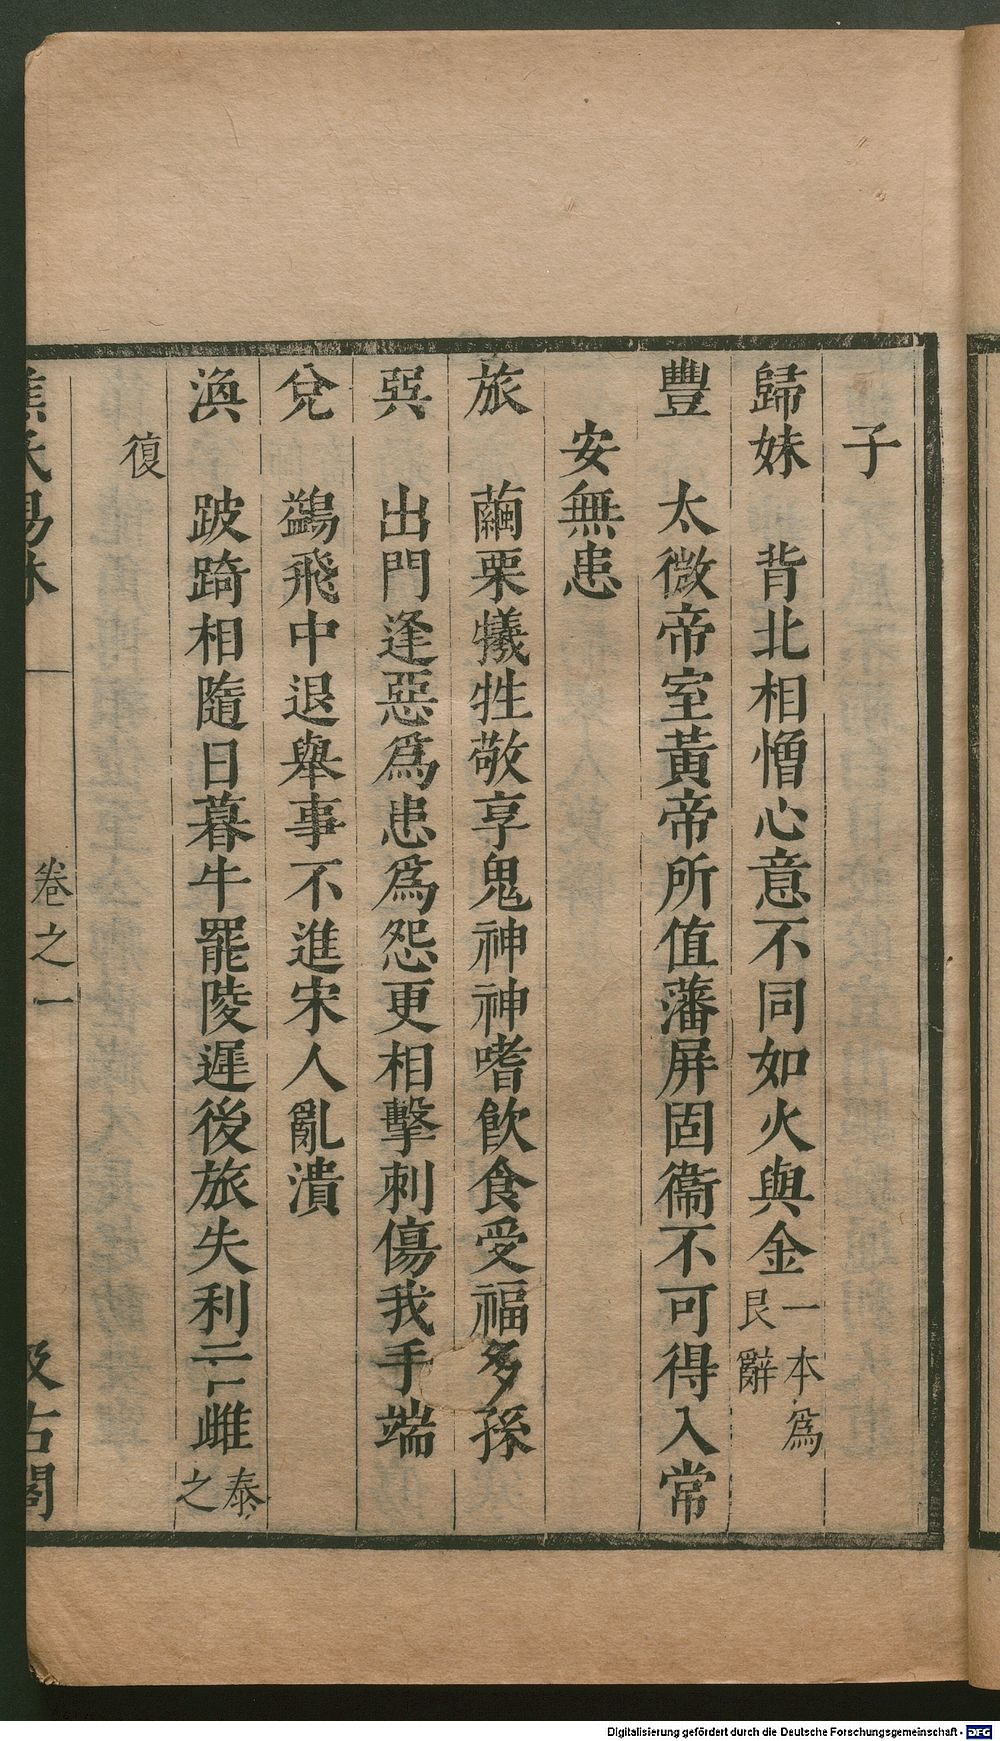 子
歸妹 背北相憎心意不同如火與金一本爲艮辭
豐 太微帝室黃帝所值藩屏固衞不可得入常
安無患
旅 繭栗犧牲敬享鬼神神嗜飲食受福多孫
巽 出門逢惡爲患爲怨更相擊刺傷我手端
兌 鷁飛中退舉事不進宋人亂潰
渙 跛踦相隨日暮牛罷陵遲後旅失利亡雌泰之
復
焦氏易林
卷之一
汲古閣
Digitalisierung gefördert durch die Deutsche Forschungsgemeinschaft - DFG